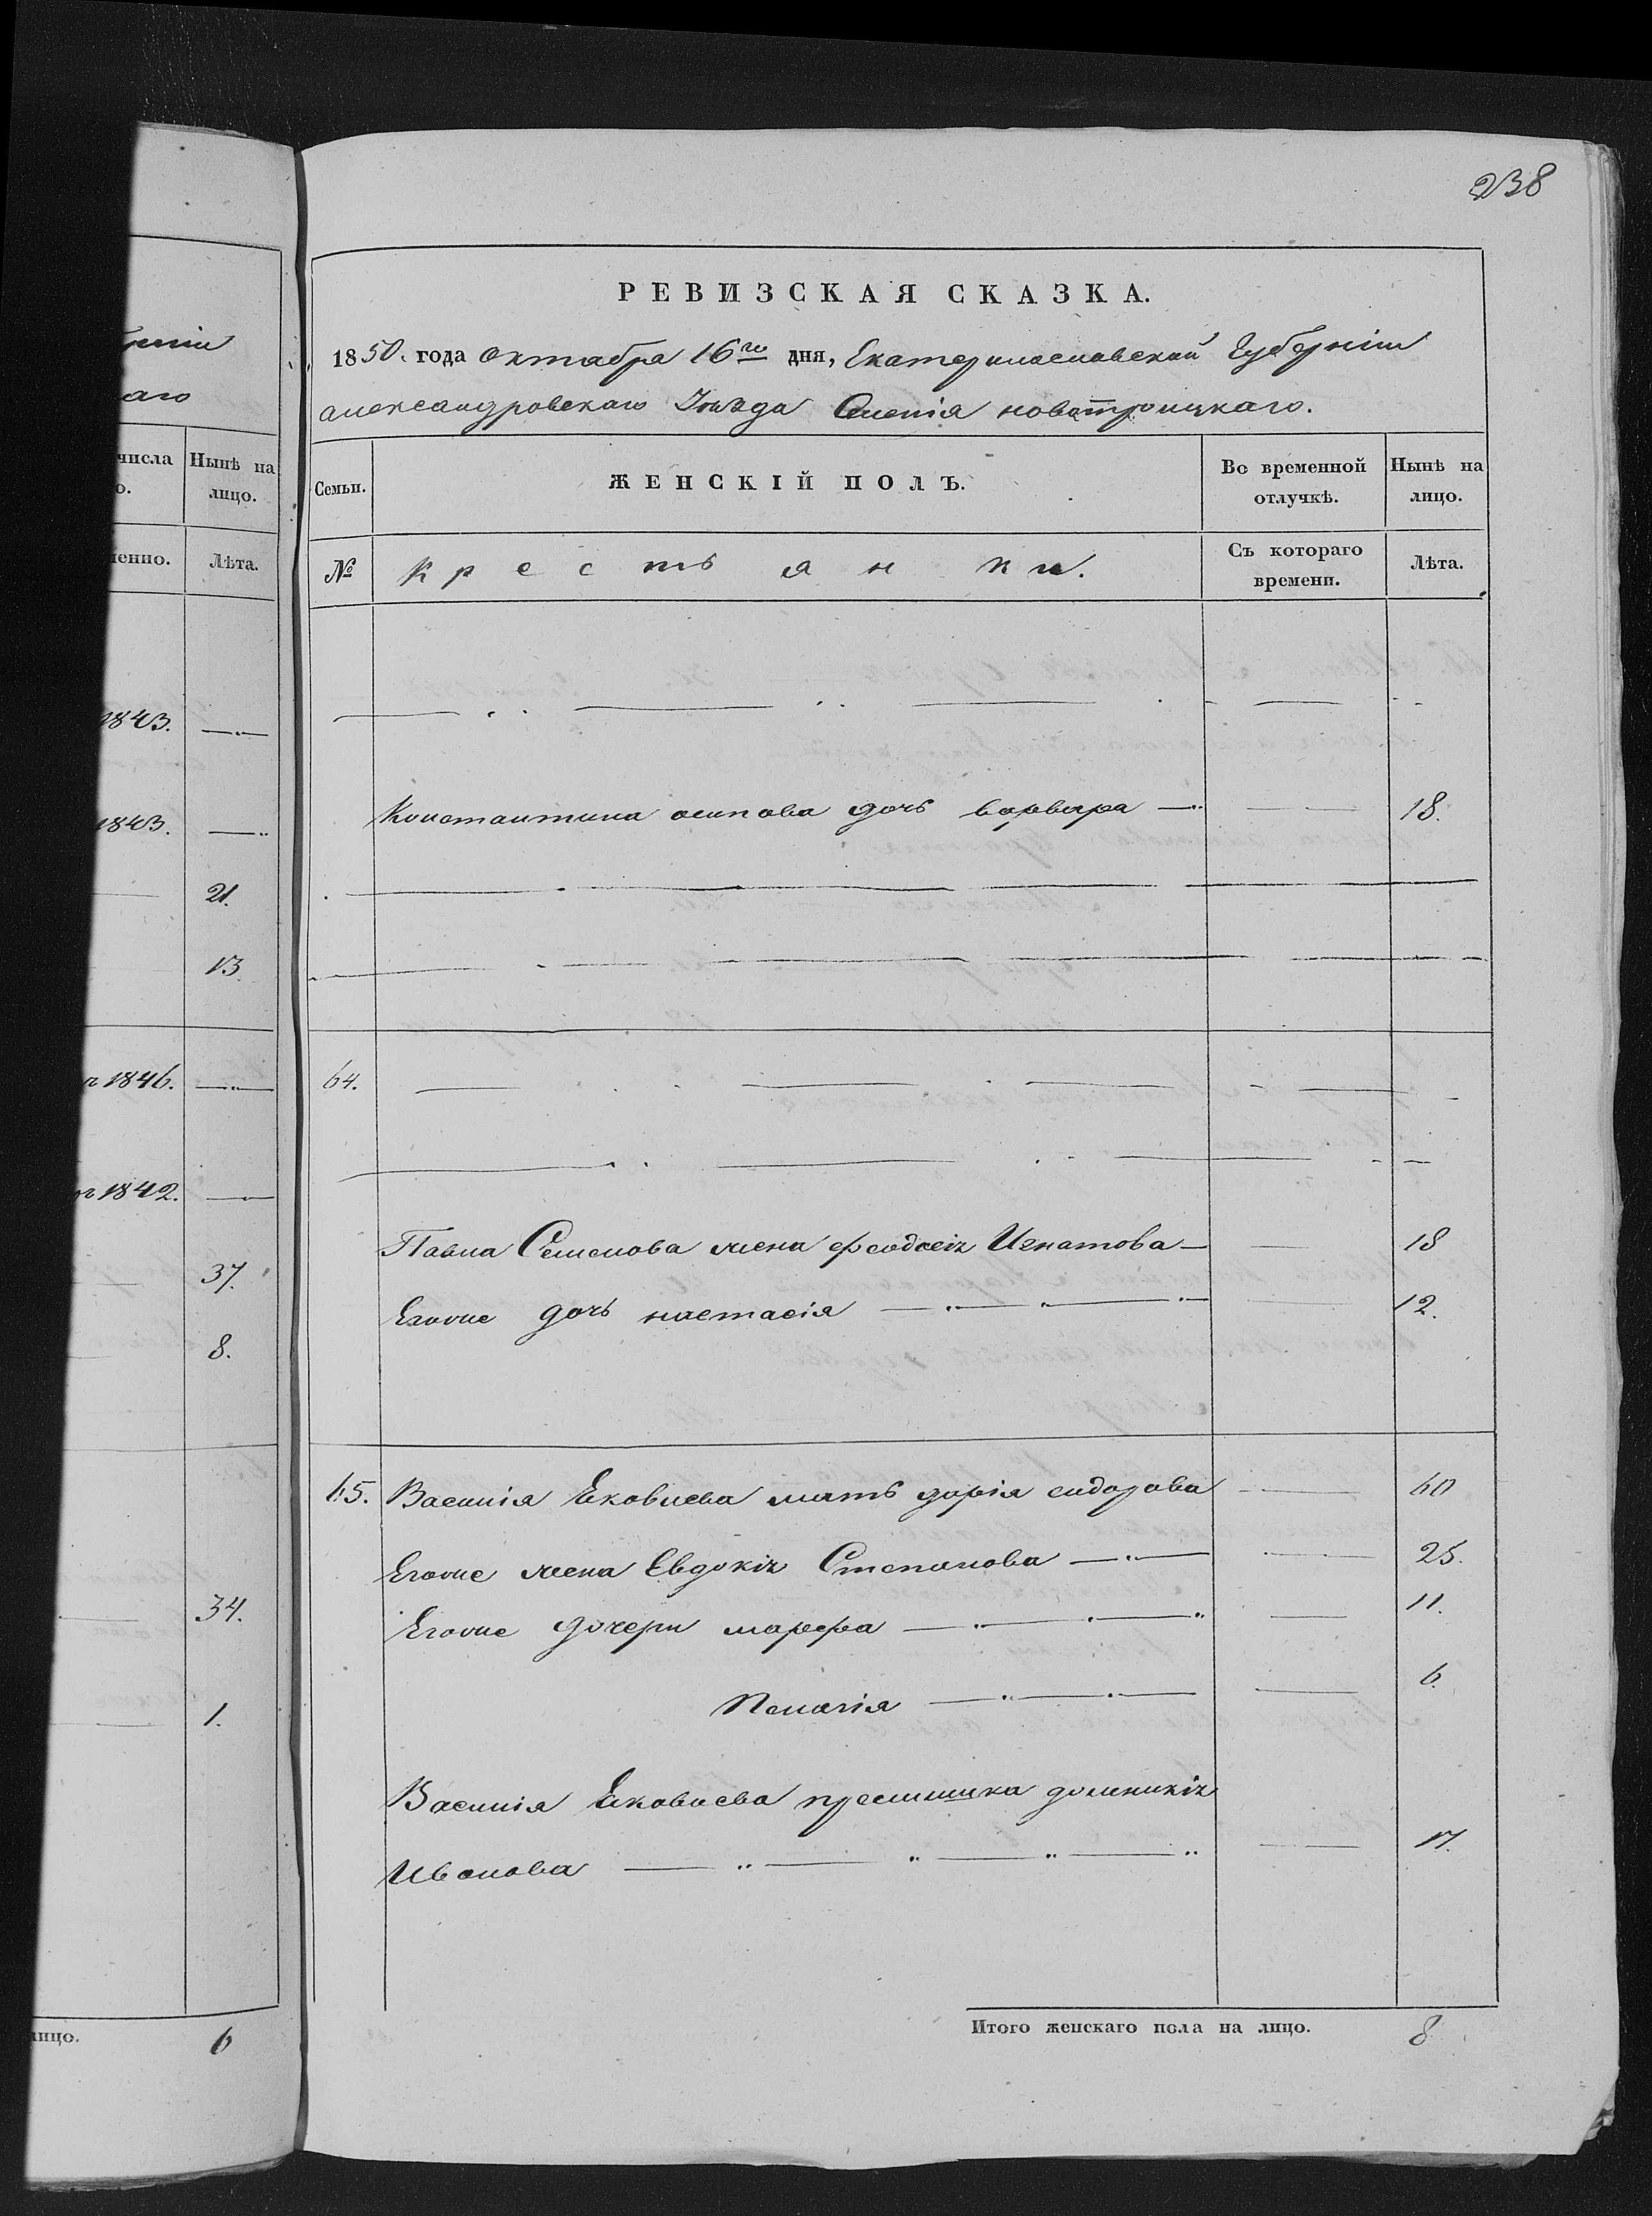 238
РЕВИЗСКАЯ СКАЗКА.
1850. года октабра 16го дня, Екатеринославской Губерніи
александровскаго Уѣзда Селенія новотроицкаго.
числа Нынѣ на лицо.
Лѣта.
1843.
1843.
21.
13.
1846.
1842.
37.
8.
34.
1.
лицо. 6
Семьи. ЖЕНСКІЙ ПОЛЪ. Во временной отлучкѣ. Нынѣ на лицо.
№ крестьянки. Съ котораго времени. Лѣта.
Константина осипова дочь варвара 18.
64.
Павла Семенова жена феодосія Игнатова 18
Егоже дочь настасія 12.
65. Василія Яковлева мать дарія сидорова 60
Егоже жена Евдокія Степанова 25.
Егоже дочери марфа 11.
Пелагія 6.
Василія Яковлева
Иванова 17.
Итого женскаго пола на лицо. 8